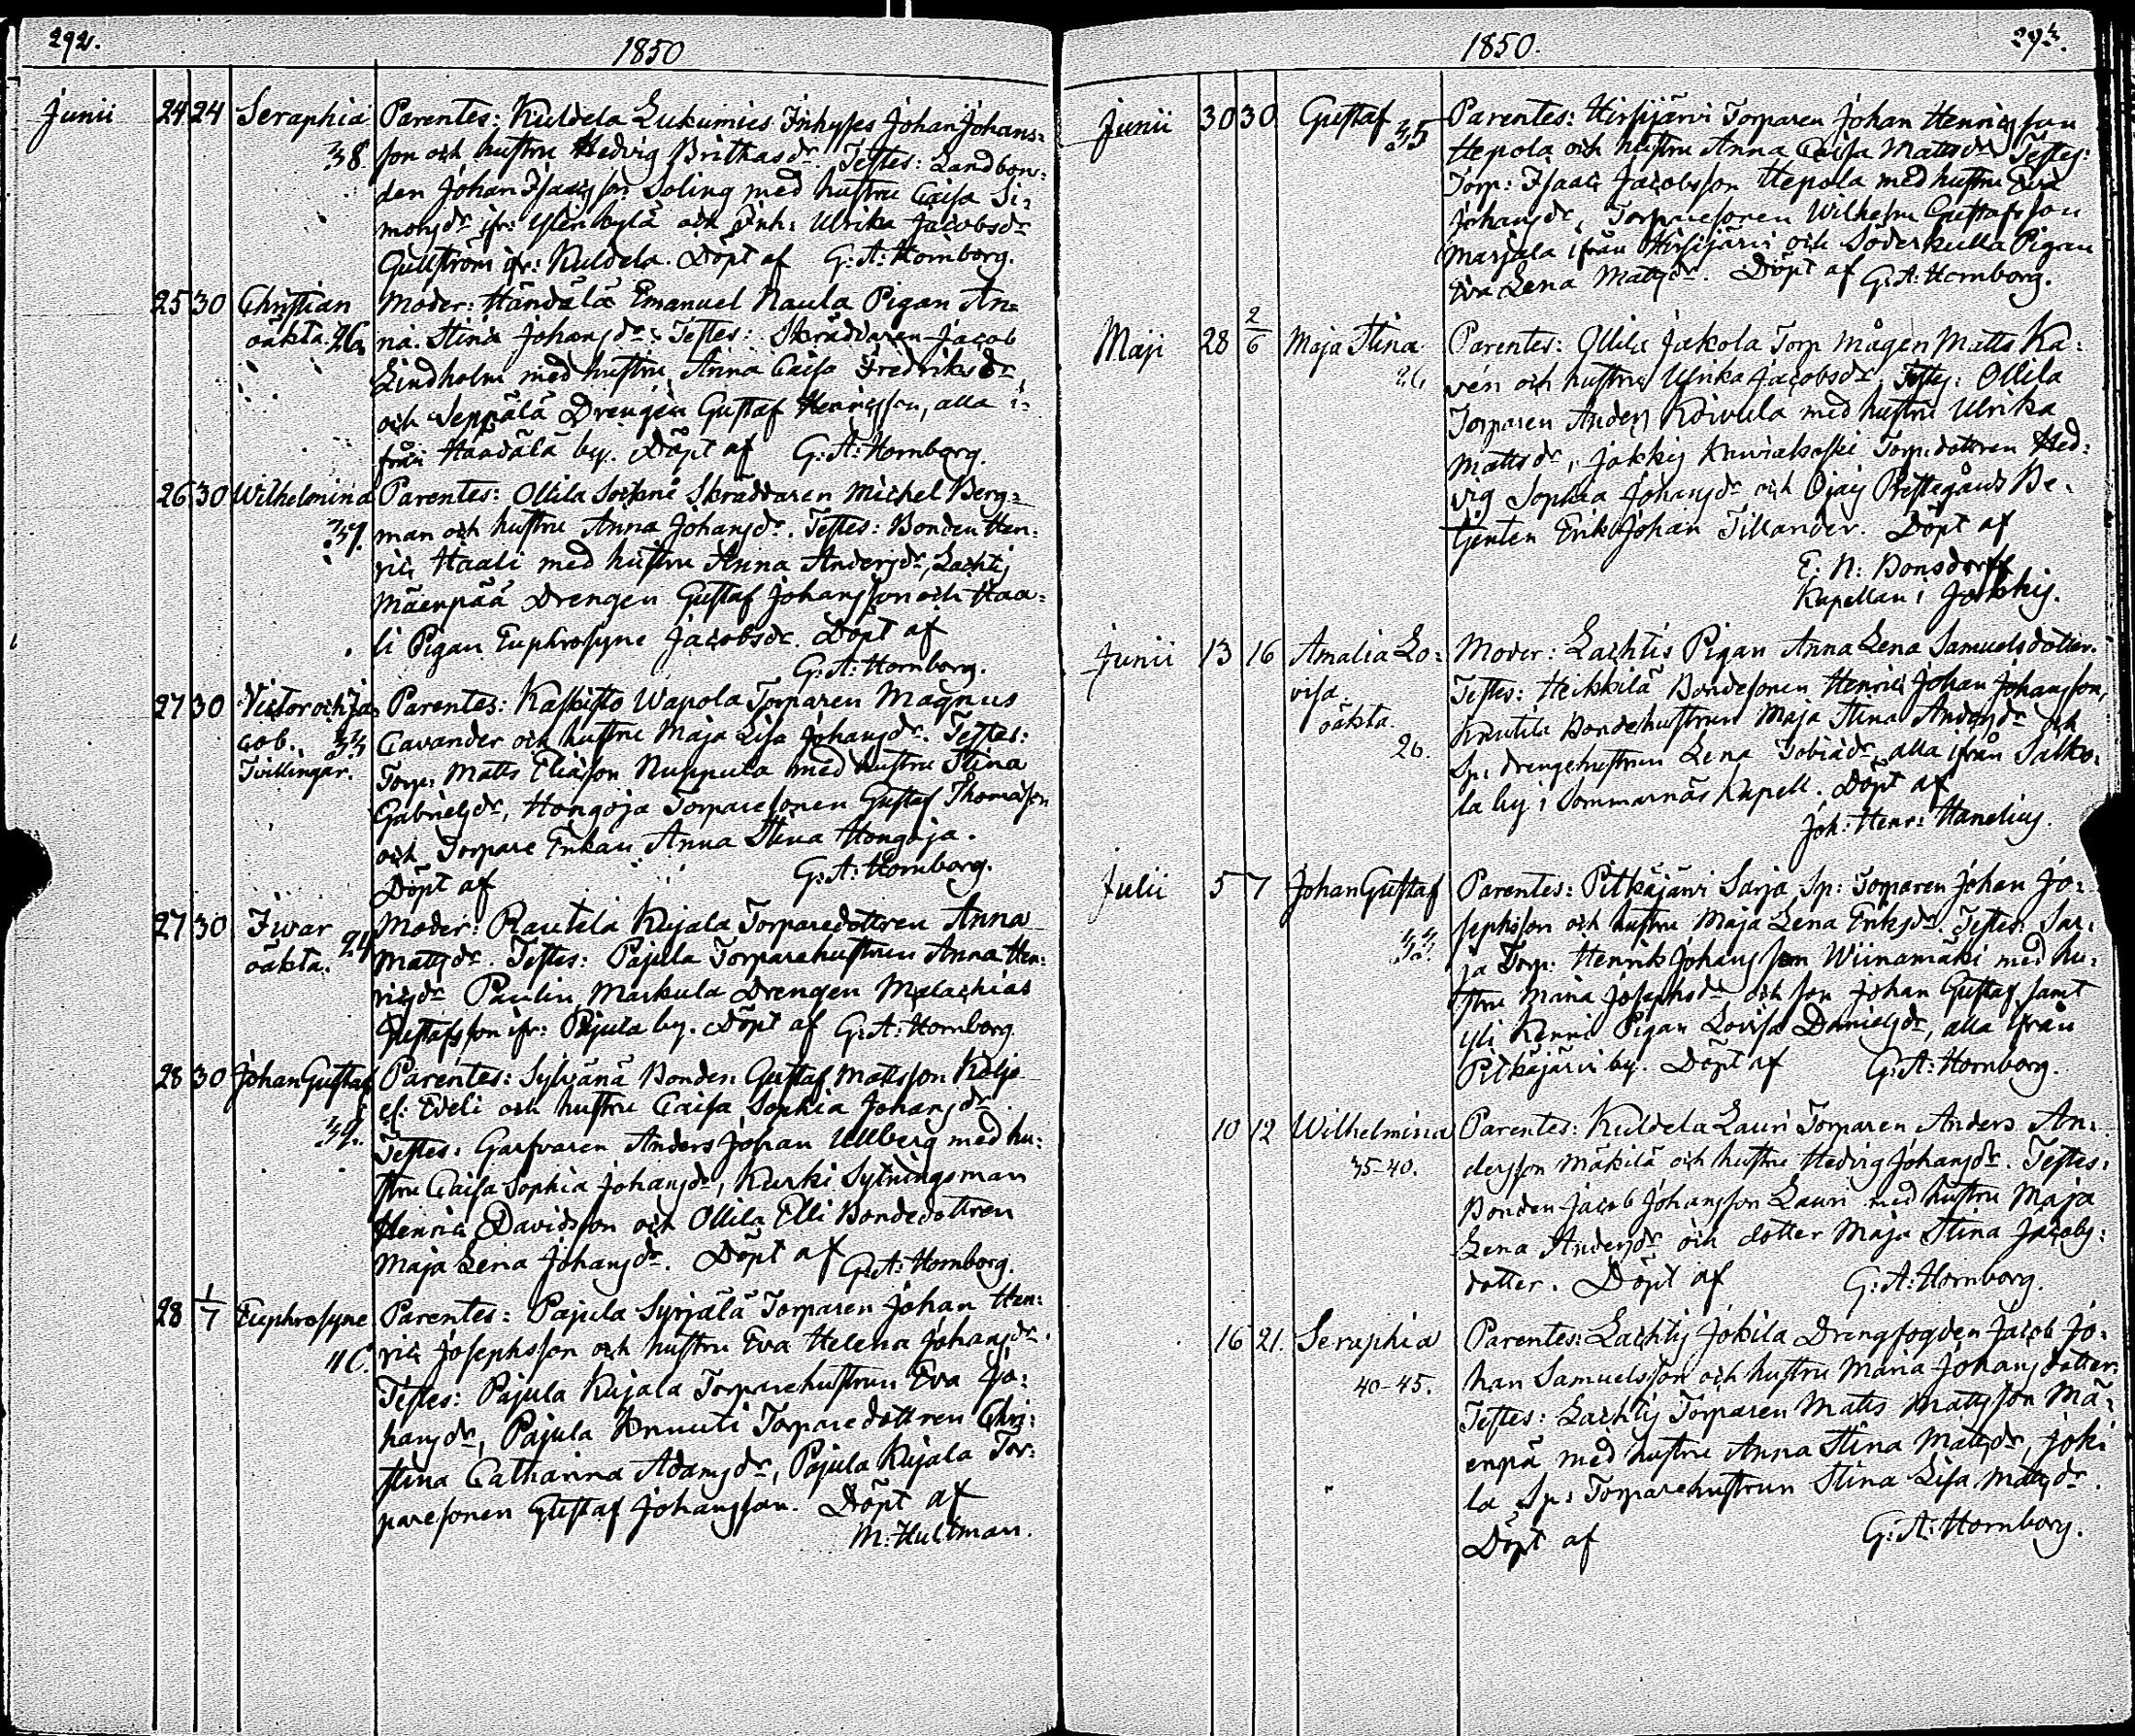 292.
1850
Junii 24 24 Seraphia Parentes: Kuldela Lukumies Inhyses Johan Johans=
38. son och hustru Hedvig Brithasdr. Testes: Landbon=
den Johan Isaacsson Soling med hustru Caisa Si=
monsdr ifr: Ylenkylä och Inh: Ulrika Jacobsdr
Gullström ifr: Kuldela. Döpt af G: A: Hornborg.
25 30 Christian Moder: Händälä Emanuel Naula Pigan An=
oäkta. 26. na Stina Johansdr. Testes: Skräddaren Jacob
Lindholm med hustru Anna Caisa Fredriksdr
och Seppälä Drengen Gustaf Henricsson, alla i=
från Haadälä by. Döpt af G: A: Hornborg.
26 30 Wilhelmina Parentes: Ollila Soikné Skräddaren Michel Berg=
37. man och hustru Anna Johansdr. Testes: Bonden Hen=
ric Haali med hustru Anna Andersdr, Lachtis
Mäenpää Drengen Gustaf Johansson och Haa=
li Pigan Euphrosyne Jacobsdr. Döpt af
G: A: Hornborg.
27 30 Victor och Ja= Parentes: Kaskisto Wapola Torparen Magnus
cob. 33 Cavander och hustru Maja Lisa Johansdr. Testes:
Tvillingar. Torp: Matts Eliasson Nuppula med hustru Stina
Gabrielsdr, Hongoja Torparesonen Gustaf Thomasson
och Torpare Enkan Anna Stina Hongoja.
Döpt af G: A: Hornborg.
27 30 Iwar Moder: Rautela Kujala Torparedottren Anna
oäkta. 24 Mattsdr. Testes: Pajula Torparehustrun Anna Hen=
ricsdr Paulin, Markula Drengen Malachias
Gustafsson ifr: Pajula by. Döpt af G: A: Hornborg.
28 30 Johan Gustaf Parentes: Sylvänä Bonden Gustaf Mattsson Köljö
el: Edeli och hustru Caisa Sophia Johansdr.
39. Testes: Garfvaren Anders Johan Ullberg med hu=
stru Caisa Sophia Johansdr, Kurki Sytningsman
Henric Davidsson och Ollila Elli Bondedottren
Maja Lena Johansdr. Döpt af G: A: Hornborg.
28 1/7 Euphrosyne Parentes: Pajula Syrjälä Torparen Johan Hen=
40. ric Josephsson och hustru Eva Helena Johansdr.
Testes: Pajula Kujala Torparehustrun Eva Jo=
hansdr, Pajula Knuuti Torparedottren Chri=
stina Catharina Adamsdr, Pajula Kujala Tor=
paresonen Gustaf Johansson. Döpt af
M: Hultman.
1850.
293.
Junii 30 30 Gustaf Parentes: Hirsijärvi Torparen Johan Henricsson
35 Hepola och hustru Anna Caisa Mattsdr. Testes:
Torp: Isaac Jacobsson Hepola med hustru Eva
Johansdr, Torparesonen Wilhelm Gustafsson
Marjala ifrån Hirsijärvi och Söderkulla Pigan
Eva Lena Mattsdr. Döpt af G: A: Hornborg.
Maji 28 2/6 Maja Stina Parentes: Ollila Jakola Torp mågen Matts Ka=
26 vén och hustru Ulrika Jacobsdr, Testes: Ollila
Torparen Anders Koivula med hustru Ulrika
Mattsdr, Jokkis Kuviakoski Torp.dottren Hed=
vig Sophia Johansdr och Ojais Prestegårds Be=
tjenten Erik Johan Tillander. Döpt af
E: N: Bonsdorff
Kapellan i Jokkis.
Junii 13 16 Amalia Lo= Moder: Lachtis Pigan Anna Lena Samuelsdotter.
visa. Testes: Heikkilä Bondesonen Henric Johan Johansson,
oäkta. Knutila Bondehustrun Maja Stina Andersdr och
20. Sp: drengehustrun Lena Tobiasdr, alla ifrån Salko=
la by i Sommarnäs Kapell. Döpt af
Joh: Henr: Hanelius.
Julii 5 7 Johan Gustaf Parentes: Pitkäjärvi Sarja Sp: Torparen Johan Jo=
33. sephsson och hustru Maja Lena Eriksdr. Testes: Sar=
ja Torp: Henrik Johansson Wiinamäki med hu=
stru Maria Josephsdr, och son Johan Gustaf samt
Yli Kenni Pigan Lovisa Danielsdr, alla ifrån
Pitkäjärvi by. Döpt af G: A: Hornborg.
10 12 Wilhelmina Parentes: Kuldela Lauri Torparen Anders An=
35-40. dersson Mäkilä och hustru Hedvig Johansdr. Testes:
Bonden Jacob Johansson Lauri med hustru Maja
Lena Andersdr och dotter Maja Stina Jacobs=
dotter. Döpt af G: A: Hornborg.
16 21. Seraphia Parentes: Lachtis Jokila Drengfogden Jacob Jo=
40-45. han Samuelsson och hustru Maria Johansdotter.
Testes: Lachtis Torparen Matts Mattsson Mä=
enpä med hustru Anna Stina Mattsdr, Joki
la Sp: Torparehustrun Stina Lisa Mattsdr.
Döpt af G: A: Hornborg.